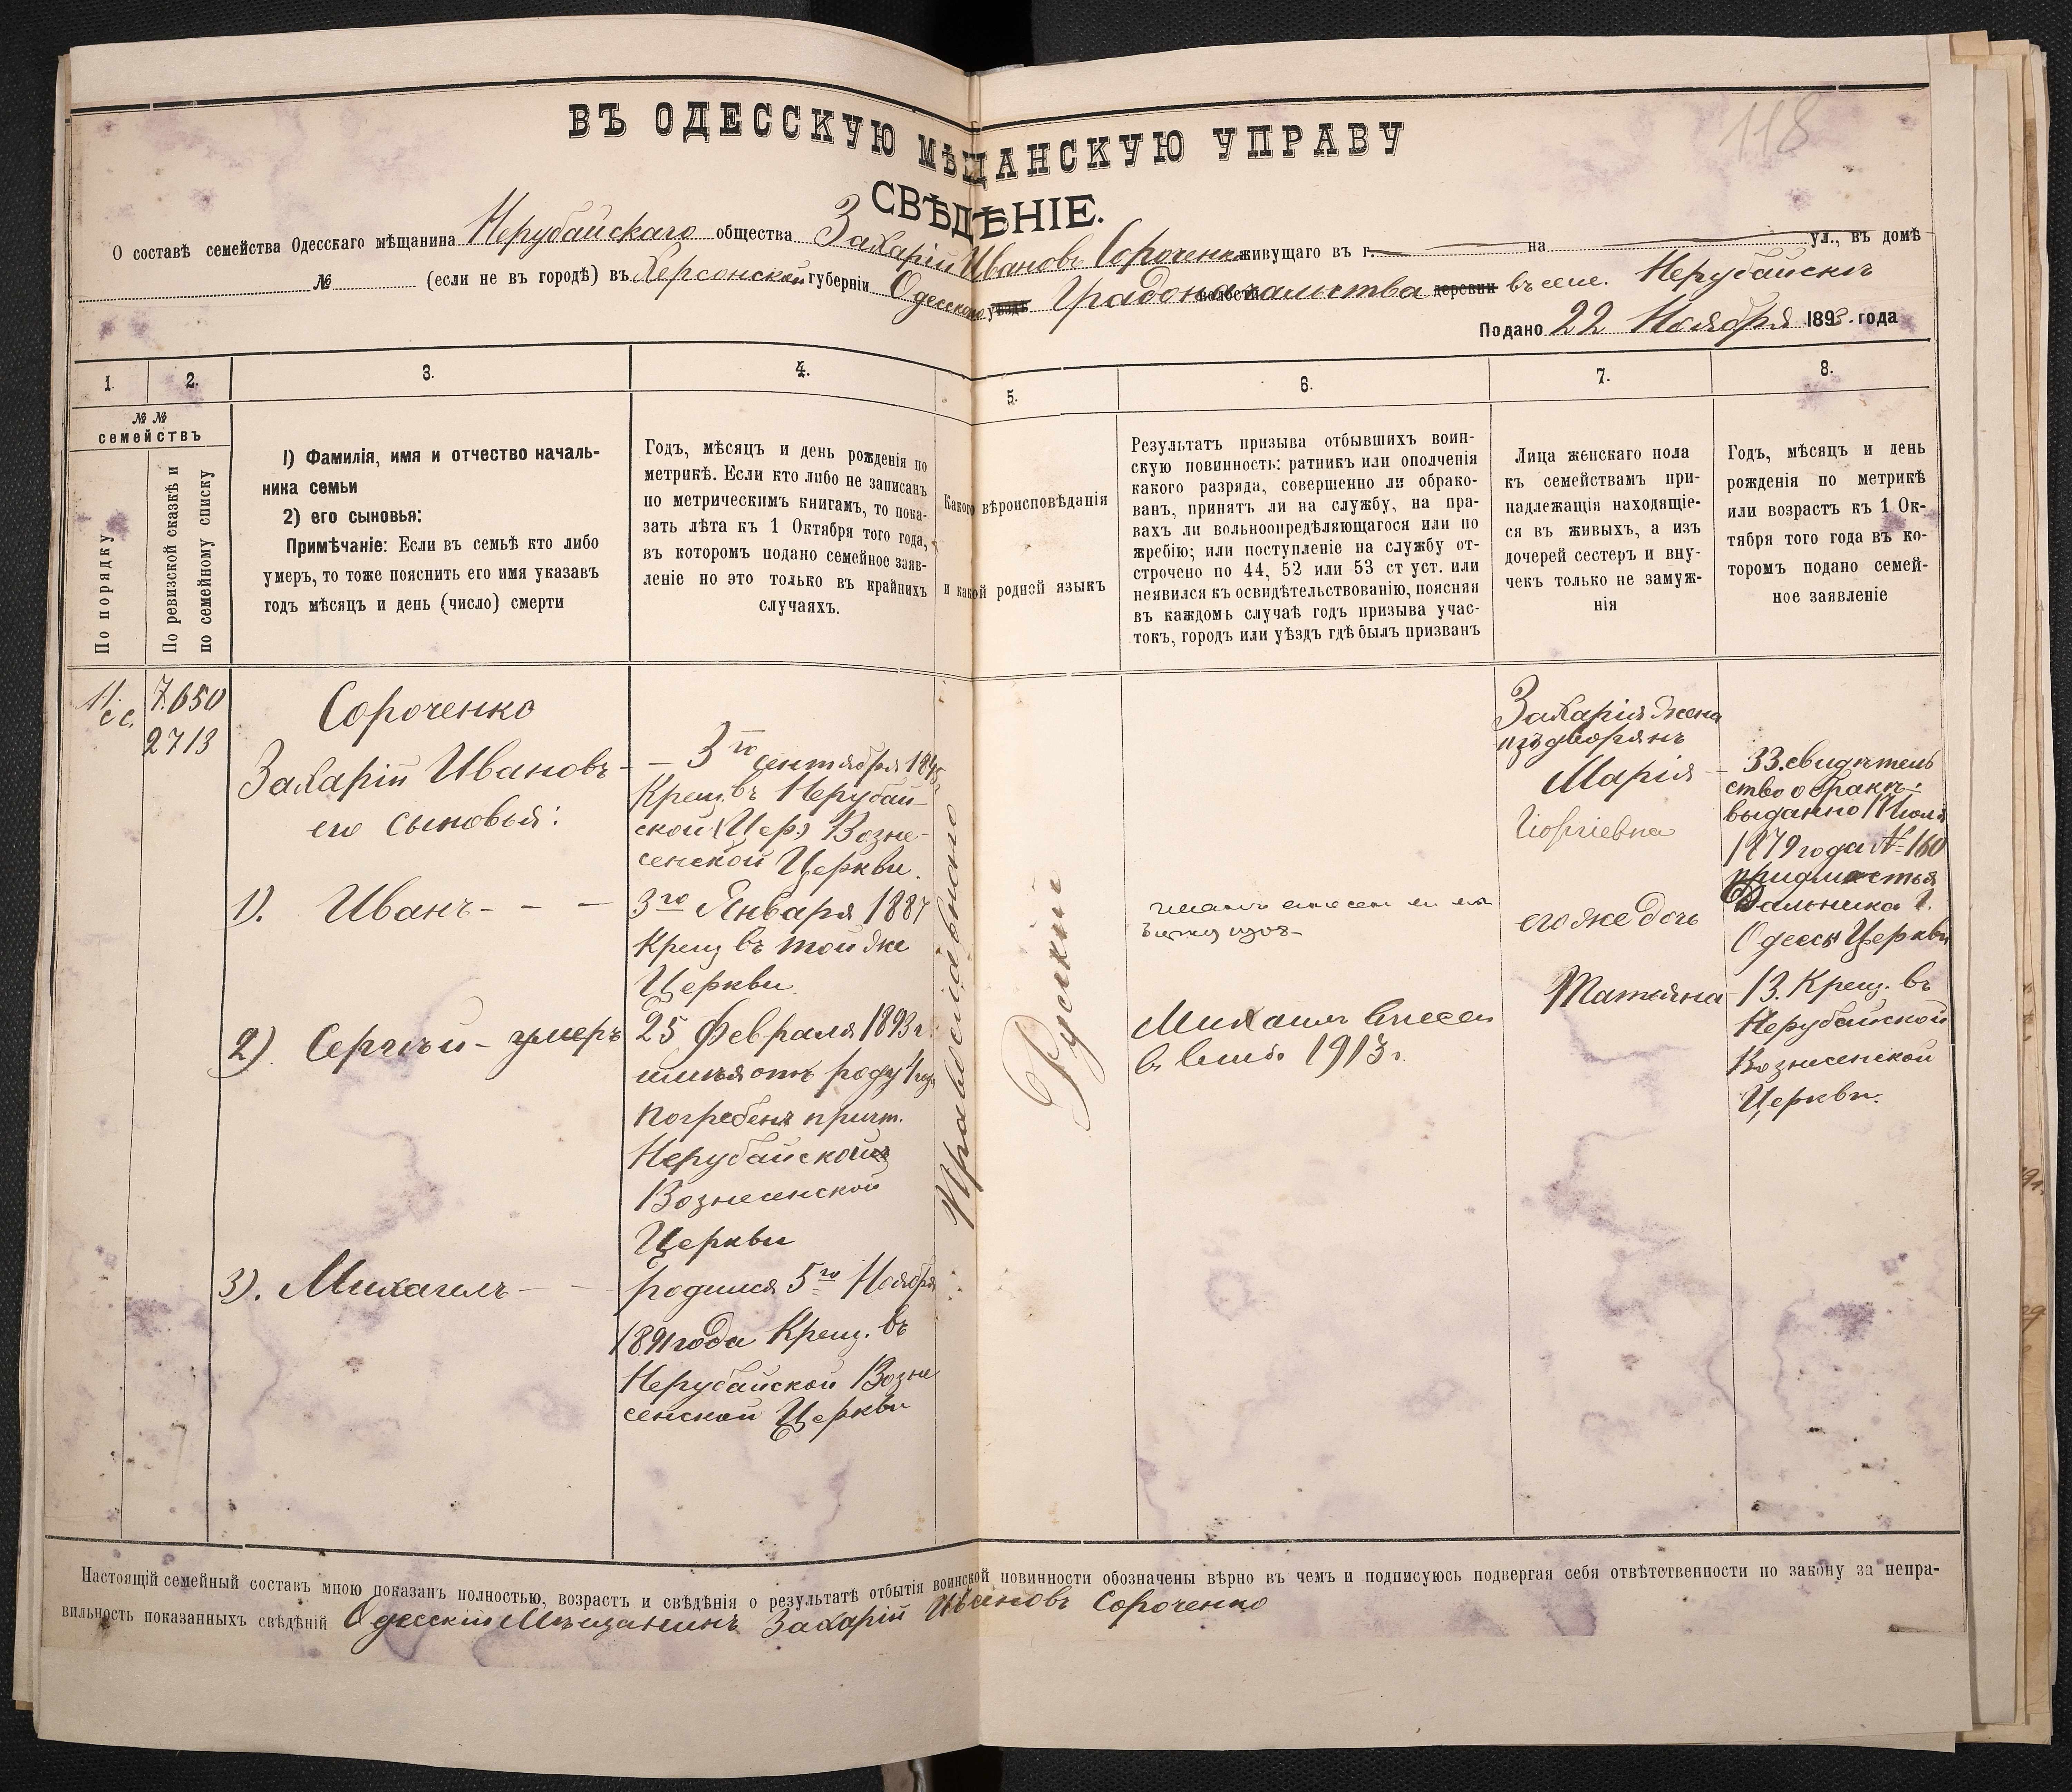 118
ВЪ ОДЕССКУЮ МѢЩАНСКУЮ УПРАВУ
СВѢДѢНІЕ.
О составѣ семейства Одесскаго мѣщанина Нерубайскаго общества Захарій Ивановъ Сороченко живущаго въ г. на ул., въ домѣ
№ (если не въ городѣ) въ Херсонской губерніи Одесскаго уѣздъ Градоначальства волости деревни въ селе. Нерубайскъ
Подано 22 Ноября 1893 года
1.
2.
3.
4.
5.
6.
7.
8.
№ №
семействъ
По порядку
По ревизской сказкѣ и
по семейному списку
1) Фамилія, имя и отчество началь-
ника семьи
2) его сыновья:
Примѣчаніе: Если въ семьѣ кто либо
умеръ, то тоже пояснить его имя указавъ
годъ мѣсяцъ и день (число) смерти
Годъ, мѣсяцъ и день рожденія по
метрикѣ. Если кто либо не записанъ
по метрическимъ книгамъ, то пока-
зать лѣта къ 1 Октября того года,
въ которомъ подано семейное заяв-
леніе но это только въ крайнихъ
случаяхъ.
Какого вѣроисповѣданія
и какой родной языкъ
Результатъ призыва отбывшихъ воин-
скую повинность: ратникъ или ополченія
какого разряда, совершенно ли обрако-
ванъ, принятъ ли на службу, на пра-
вахъ ли вольноопредѣляющагося или по
жребію; или поступленіе на службу от-
строчено по 44, 52 или 53 ст уст. или
неявился къ освидѣтельствованію, поясняя
въ каждомъ случаѣ годъ призыва учас-
токъ, городъ или уѣздъ гдѣ былъ призванъ
Лица женскаго пола
къ семействамъ при-
надлежащія находящіе-
ся въ живыхъ, а изъ
дочерей сестеръ и вну-
чекъ только не замуж-
нія
Годъ, мѣсяцъ и день
рожденія по метрикѣ
или возрастъ къ 1 Ок-
тября того года въ ко-
торомъ подано семей-
ное заявленіе
7.650
2713
Сороченко
Захарій Ивановъ
его сыновья:
1). Иванъ
2) Сергѣй - умеръ
3). Михаилъ
3го сентября
Крещ. въ Нерубай-
ской (Цер) Возне-
сенской Церкви.
3го Января 1887
Крещ въ той же
Церкви
25 Февраля 1893 г.
имѣя отъ роду 1
погребенъ причт.
Нерубайской
Вознесенской
Церкви
родился 5го Ноября
1891 года Крещ. въ
Нерубайской Возне
сенской Церкви
Православнаго
Русскій
Михаилъ внесен
в 1913 г.
Захарія жена
изъ дворянъ
Марія
Георгіевна
его же дочь
Татьяна
33. свидѣтель
ство о бракѣ
выданно Июля
1879 года № 160
Дальника г.
Одессы Церкви
13. Крещ. въ
Нерубайской
Вознесенской
Церкви.
Настоящій семейный составъ мною показанъ полностью, возрастъ и свѣдѣнія о результатѣ отбытія воинской повинности обозначены вѣрно въ чемъ и подписуюсь подвергая себя отвѣтственности по закону за непра-
вильность показанныхъ свѣдѣній Одесскій Мѣщанинъ Захарій Ивановъ Сороченко